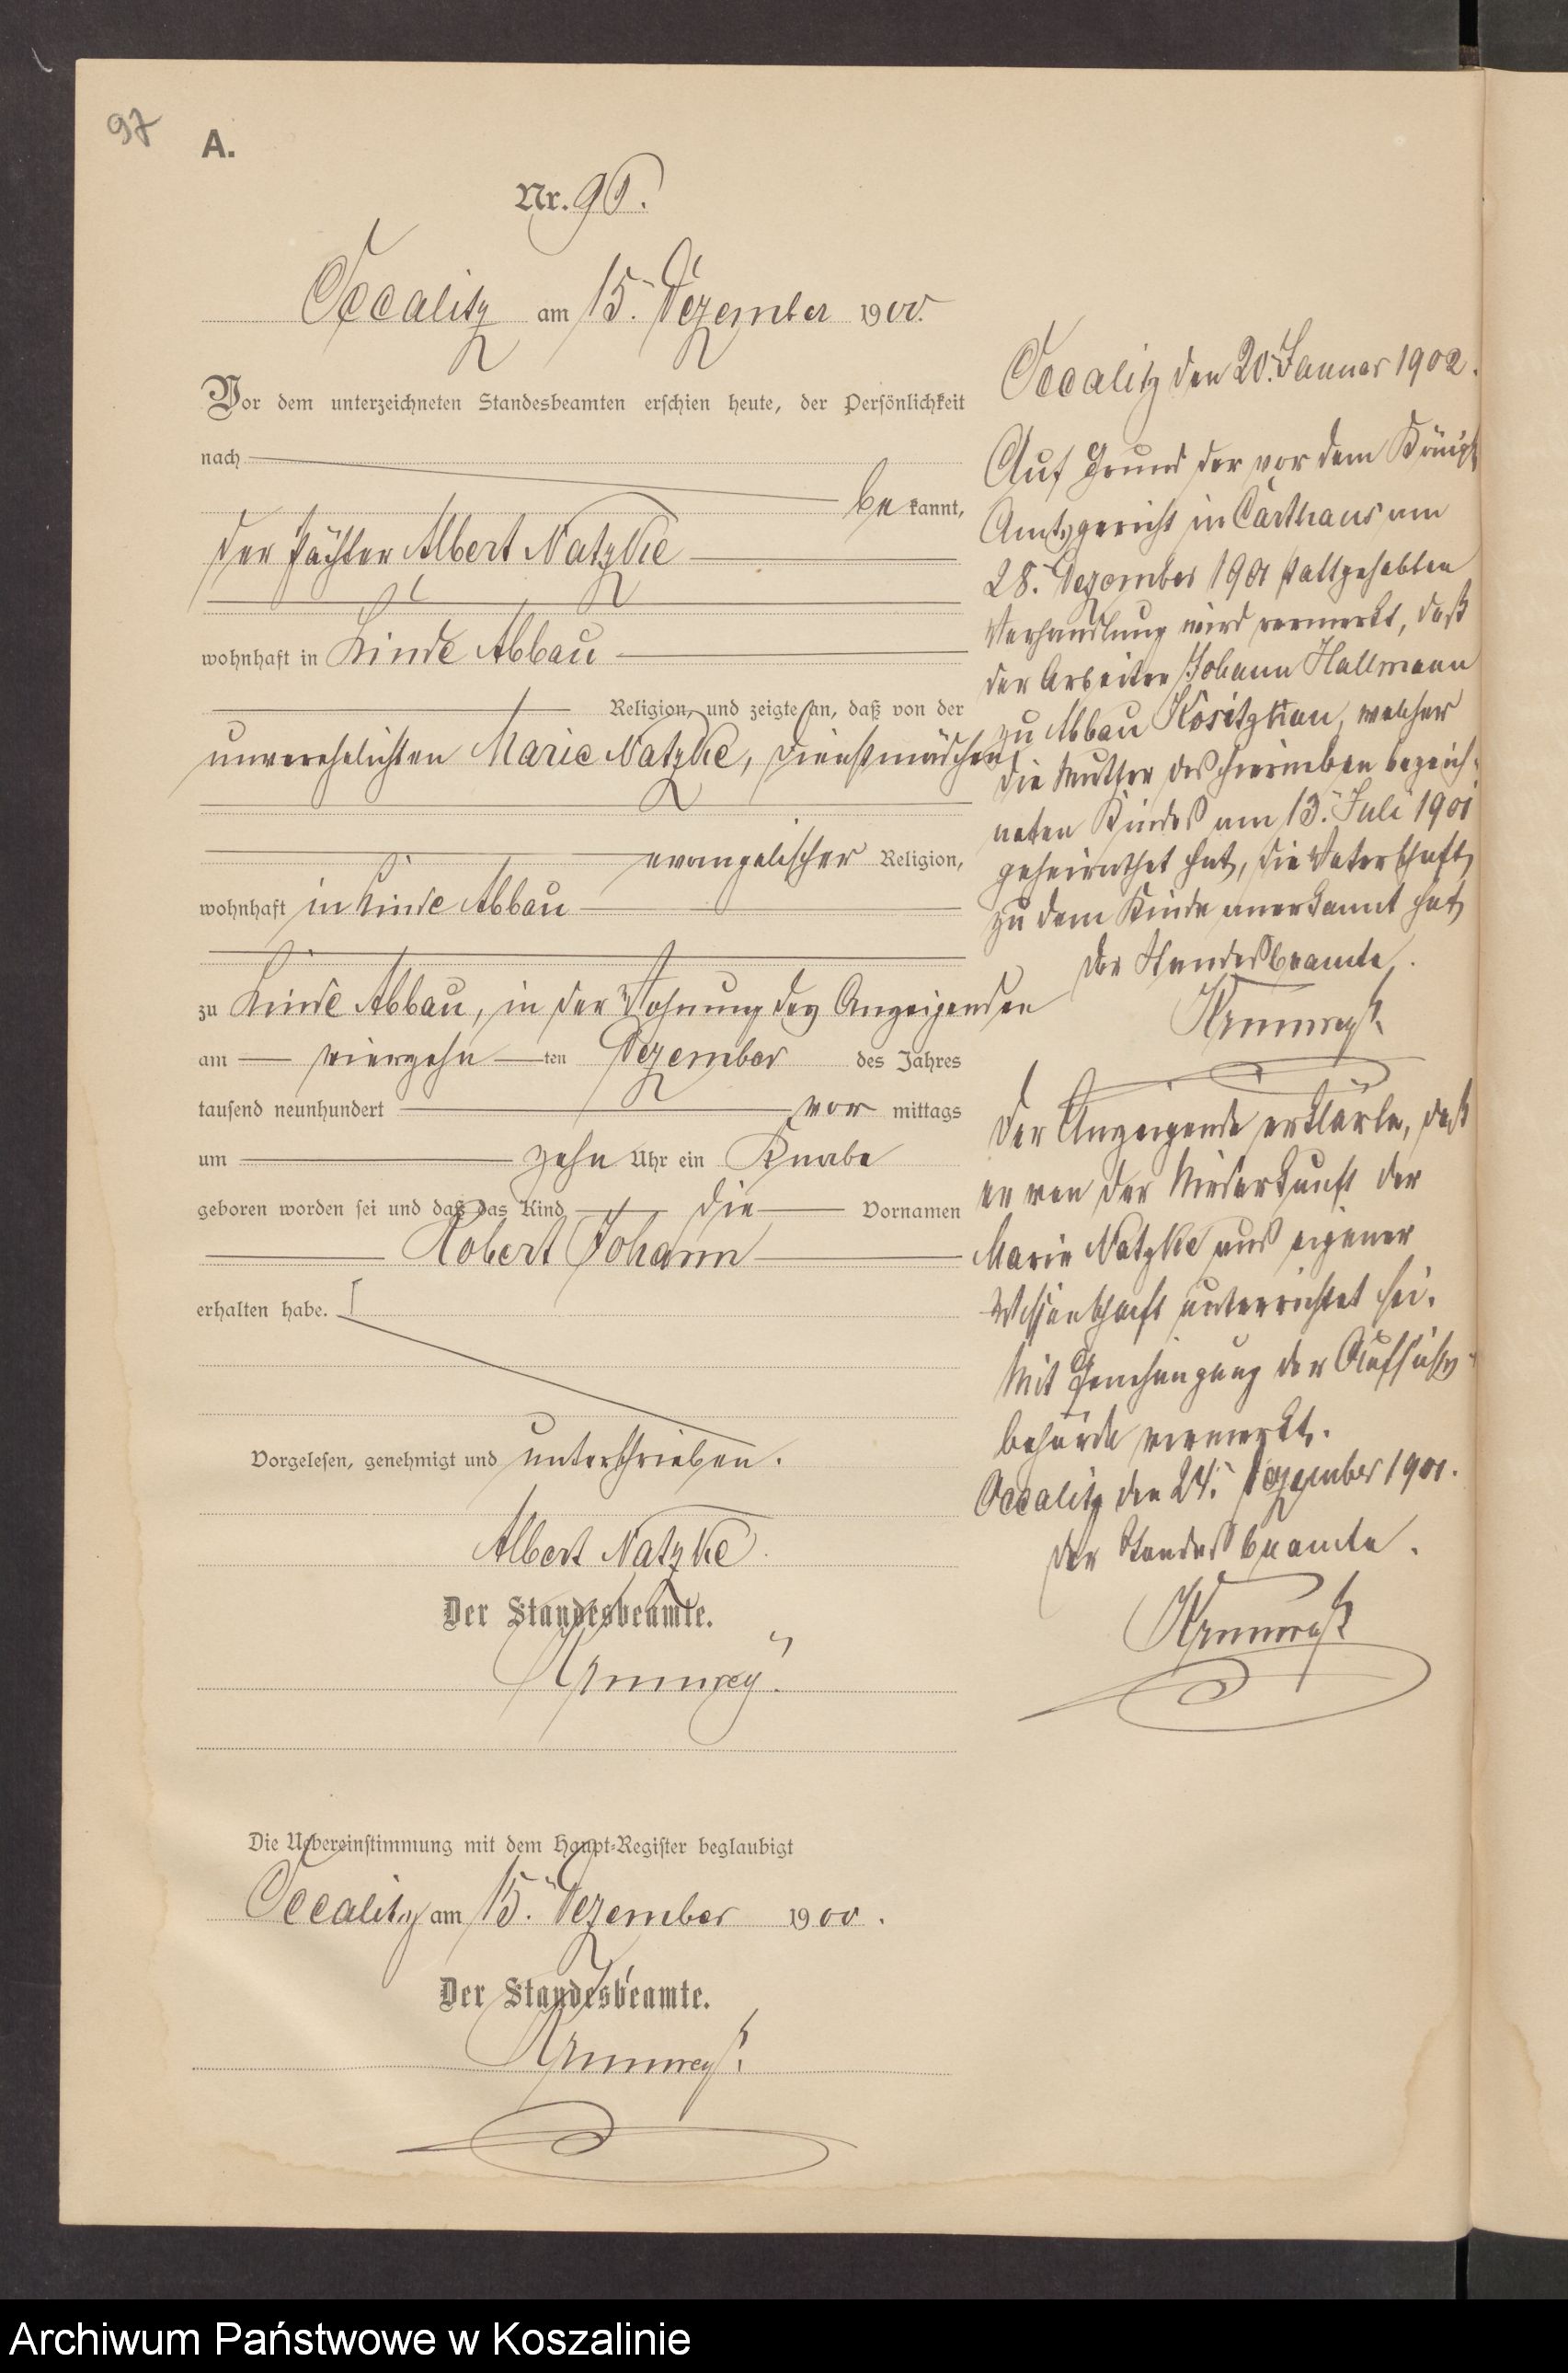 97
A.
Nr. 96.
Occalitz am 15. Dezember 1900.
Vor dem unterzeichneten Standesbeamten erschien heute, der Persönlichkeit
nach
be kannt,
der Pächter Albert Natzke
wohnhaft in Linde Abbau
Religion, und zeigte an, daß von der
unverehelichten Marie Natzke, Dienstmädchen,
evangelischer Religion,
wohnhaft in Linde Abbau
zu Linde Abbau, in der Wohnung des Anzeigenden
am vierzehn ten Dezember des Jahres
tausend neunhundert vor mittags
um zehn Uhr ein Knabe
geboren worden sei und daß das Kind die Vornamen
Robert Johann
erhalten habe.
Vorgelesen, genehmigt und unterschrieben.
Albert Natzke
Der Standesbeamte.
Die Uebereinstimmung mit dem Haupt-Register beglaubigt
Occalitz am 15. Dezember 1900.
Der Standesbeamte.
Occalitz den 20. Januar 1902.
Auf Grund der vor dem Königl
Amtsgericht in Carthaus am
28. Dezember 1901 stattgehabten
Verhandlung wird vermerkt, daß
der Arbeiter Johann Hallmann
zu Abbau Kositzkau, welcher
die Mutter des hierneben bezeich-
neten Kindes am 13. Juli 1901
geheirathet hat, die Vaterschaft
zu dem Kinde anerkannt hat
Der Standesbeamte.
Der Anzeigende erklärte, daß
er von der Niederkunft der
Marie Natzke aus eigener
Wissenschaft unterrichtet sei.
Mit Genehmigung der Aufsichts-
behörde vermerkt.
Occalitz den 24. Dezember 1901.
Der Standesbeamte.
Archiwum Państwowe w Koszalinie